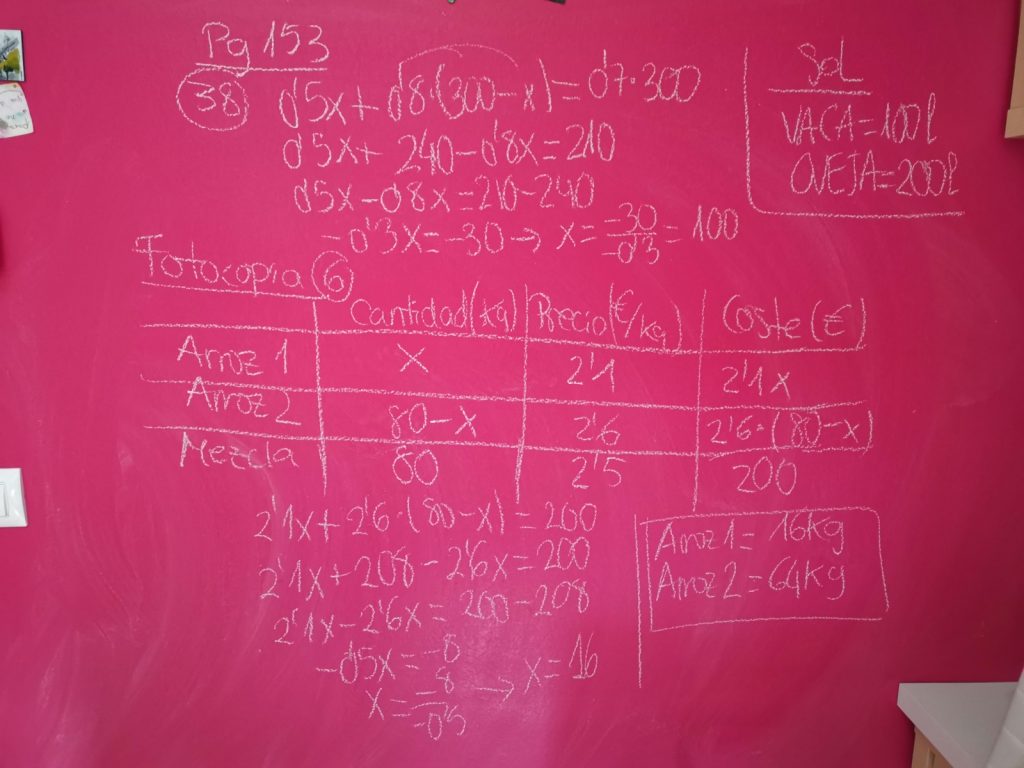 Pg 153
38 0'5x + 0'8·(300-x) = 0'7·300
0'5x + 240 - 0'8x = 210
0'5x - 0'8x = 210 - 240
-0'3x = -30 → x = -30/-0'3 = 100
Sol
VACA = 100 l
OVEJA = 200 l
Fotocopia 6
Cantidad (kg) Precio (€/kg) Coste (€)
Arroz 1 x 2'1 2'1x
Arroz 2 80-x 2'6 2'6·(80-x)
Mezcla 80 2'5 200
2'1x + 2'6·(80-x) = 200
2'1x + 208 - 2'6x = 200
2'1x - 2'6x = 200 - 208
-0'5x = -8
x = -8/-0'5 → x = 16
Arroz 1 = 16 kg
Arroz 2 = 64 kg